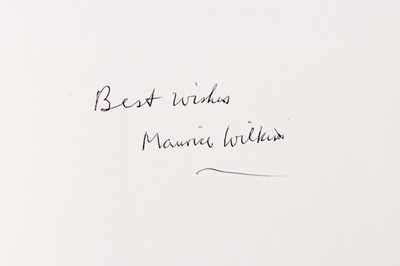 Best wishes
Maurice Wilkins